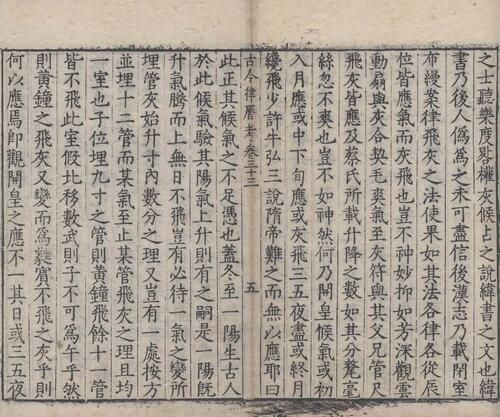 之士聽樂度晷權灰候占之說緯書之文也緯
書乃後人僞爲之未可盡信後漢志乃載閉室
布縵案律飛灰之法使果如其法各律各從辰
位皆應氣灰飛也豈不神妙抑如芳深觀雲
動扇與灰合契毛爽氣至灰符與其父兄管尺
飛灰皆應及蔡氏所載升降之數如其分釐毫
絲忽不爽也豈不如神然何乃開皇候氣或初
入月應或中下旬應或灰飛三五夜盡或終月
纔飛少許牛弘三說隋帝難之而無以應耶曰
此正其候氣之不足憑也蓋冬至一陽生古人
古今律曆考 卷三十三 五
於此候氣驗其陽氣上升則有之嗣是一陽旣
升氣騰而上無日不飛豈有必待一氣之變所
埋管灰始升寸內數分之理又豈有一處按方
並埋十二管而某氣止某管飛灰之理且均
一室也子位埋九寸之管則黃鐘飛餘十一管
皆不飛此室假比移數武則子不可爲午乎然
則黃鐘之飛灰又變而爲蕤賓不飛之灰乎則
何以應焉卽觀開皇之應不一其日或三五夜